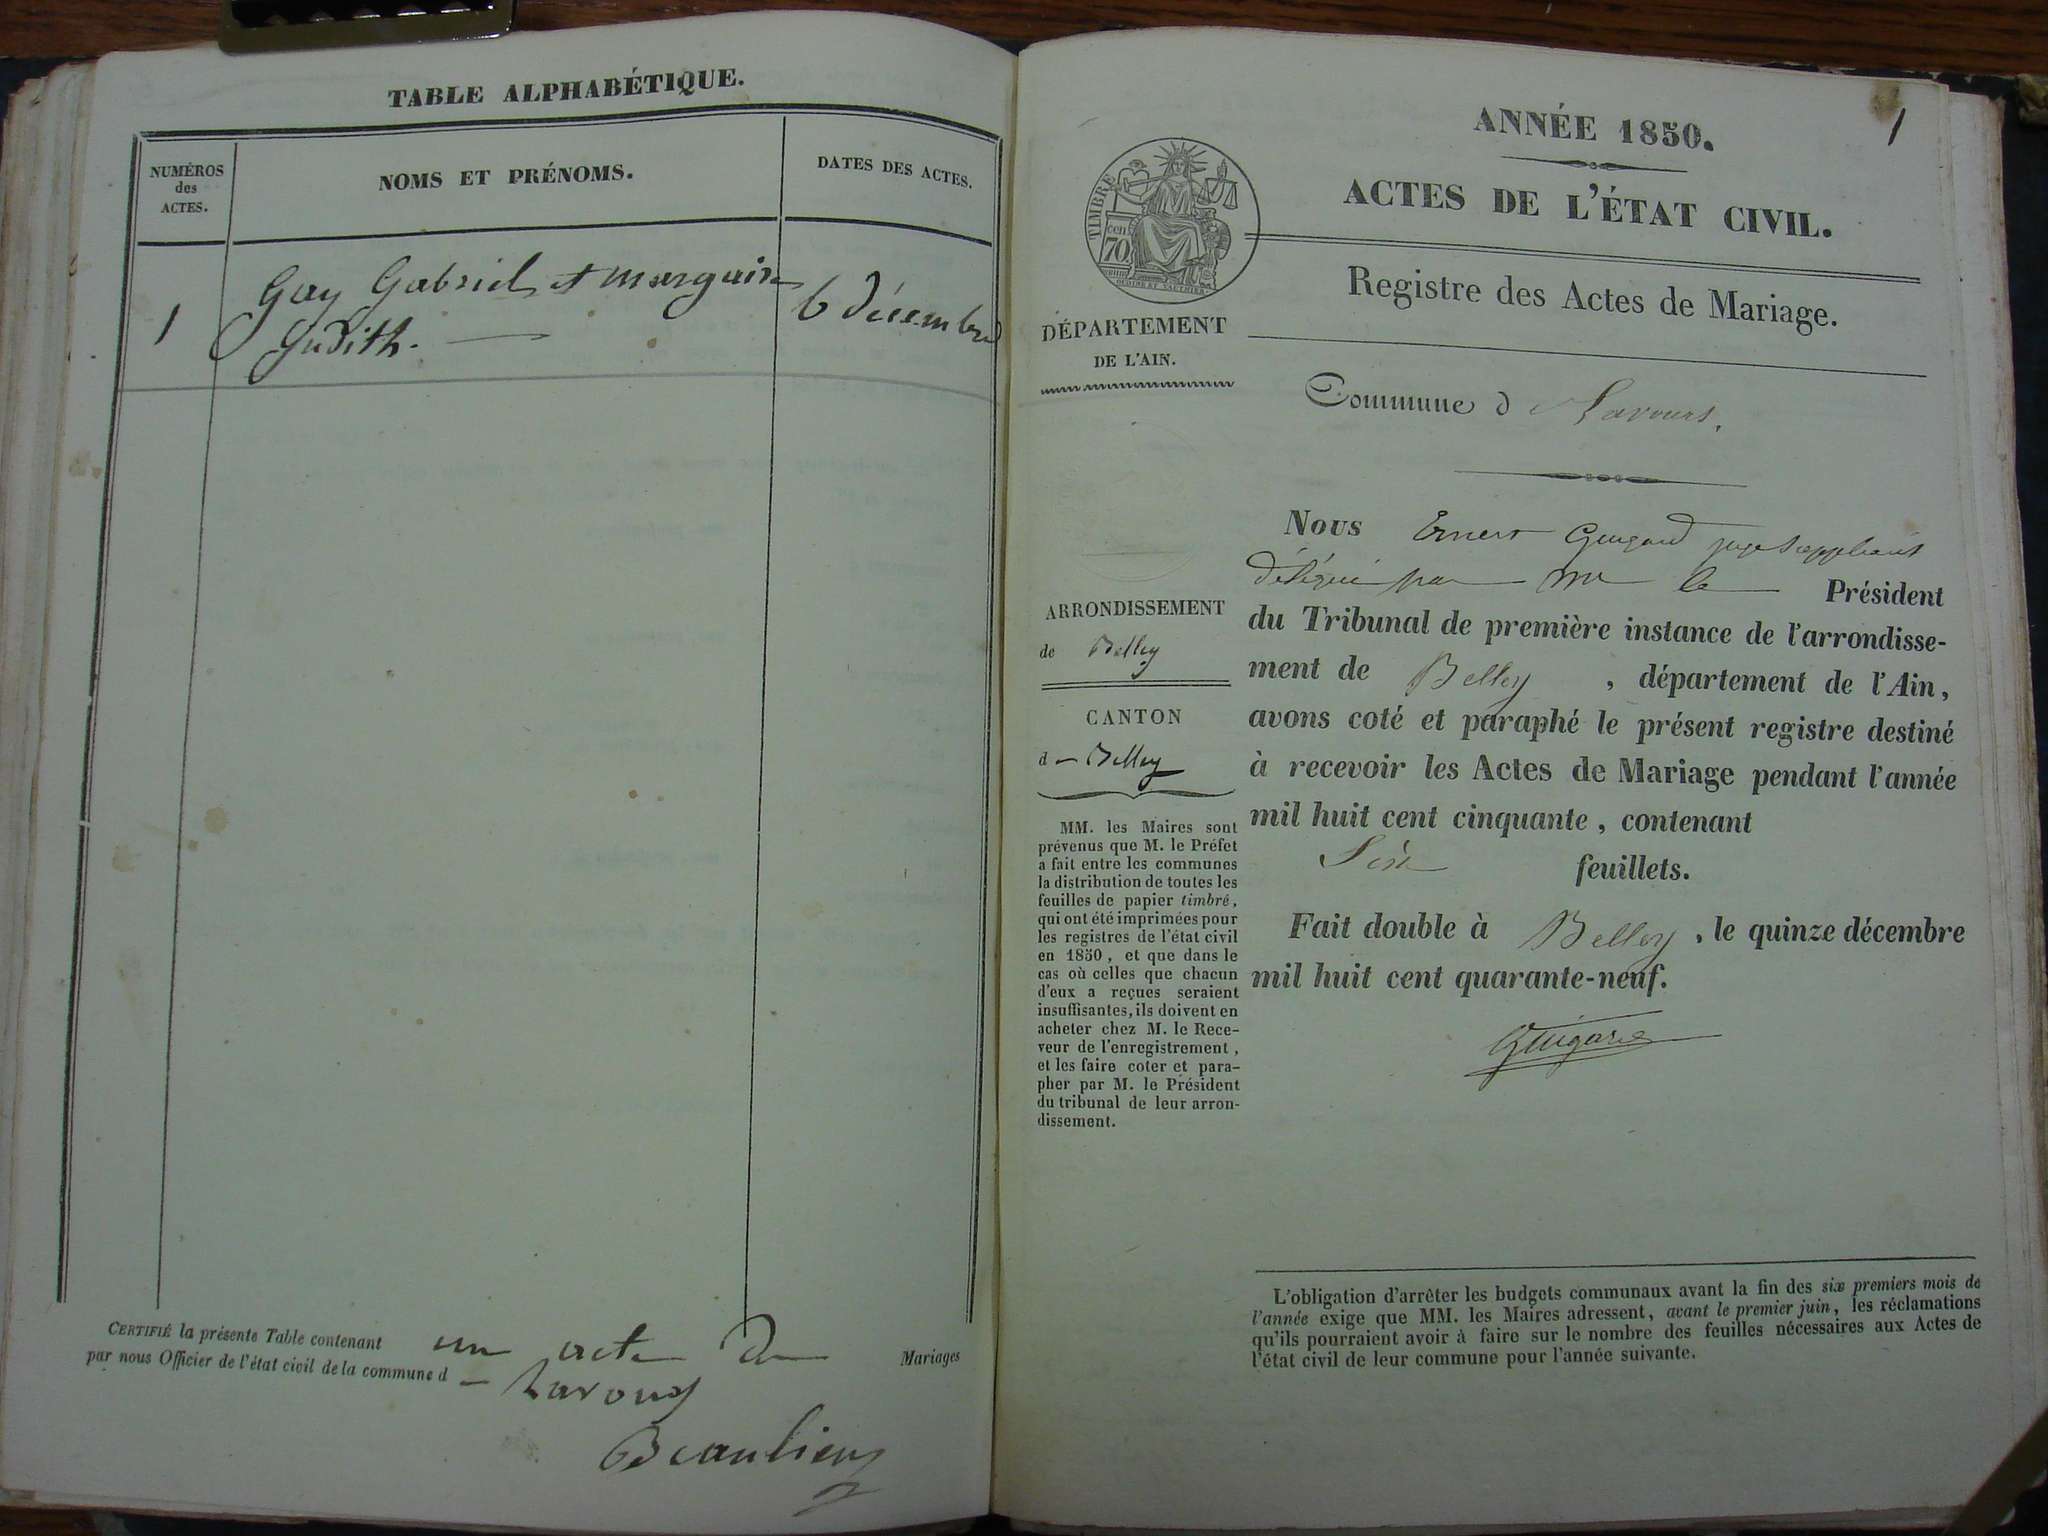 TABLE ALPHABÉTIQUE.
NUMÉROS
des
ACTES.
NOMS ET PRÉNOMS.
DATES DES ACTES.
1
Gay Gabriel et marguin
Judith.
6 décembre
CERTIFIÉ la présente Table contenant un acte de Mariages
par nous Officier de l'état civil de la commune d
Beaulieu
1
ANNÉE 1850.
ACTES DE L'ÉTAT CIVIL.
Registre des Actes de Mariage.
TIMBRE
cen
70
DÉPARTEMENT
DE L'AIN.
Commune de Lavours.
ARRONDISSEMENT
de Belley
CANTON
de Belley
MM. les Maires sont
prévenus que M. le Préfet
a fait entre les communes
la distribution de toutes les
feuilles de papier timbré,
qui ont été imprimées pour
les registres de l'état civil
en 1850, et que dans le
cas où celles que chacun
d'eux a reçues seraient
insuffisantes, ils doivent en
acheter chez M. le Rece-
veur de l'enregistrement,
et les faire coter et para-
pher par M. le Président
du tribunal de leur arron-
dissement.
Nous Ernest juge suppléant
délégué par Mr le Président
du Tribunal de première instance de l'arrondisse-
ment de Belley, département de l'Ain,
avons coté et paraphé le présent registre destiné
à recevoir les Actes de Mariage pendant l'année
mil huit cent cinquante, contenant
feuillets.
Fait double à Belley, le quinze décembre
mil huit cent quarante-neuf.
L'obligation d'arrêter les budgets communaux avant la fin des six premiers mois de
l'année exige que MM. les Maires adressent, avant le premier juin, les réclamations
qu'ils pourraient avoir à faire sur le nombre des feuilles nécessaires aux Actes de
l'état civil de leur commune pour l'année suivante.